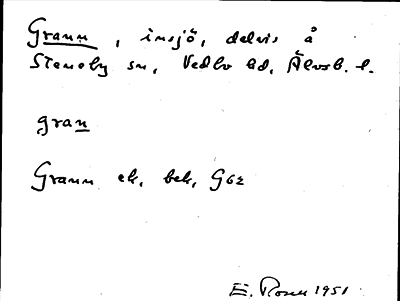 Grann, insjö, delvis å
Steneby sn, Vedbo hd, Älvsb. l.
gran
Grann ek, bek, G62
E. Rosén 1951